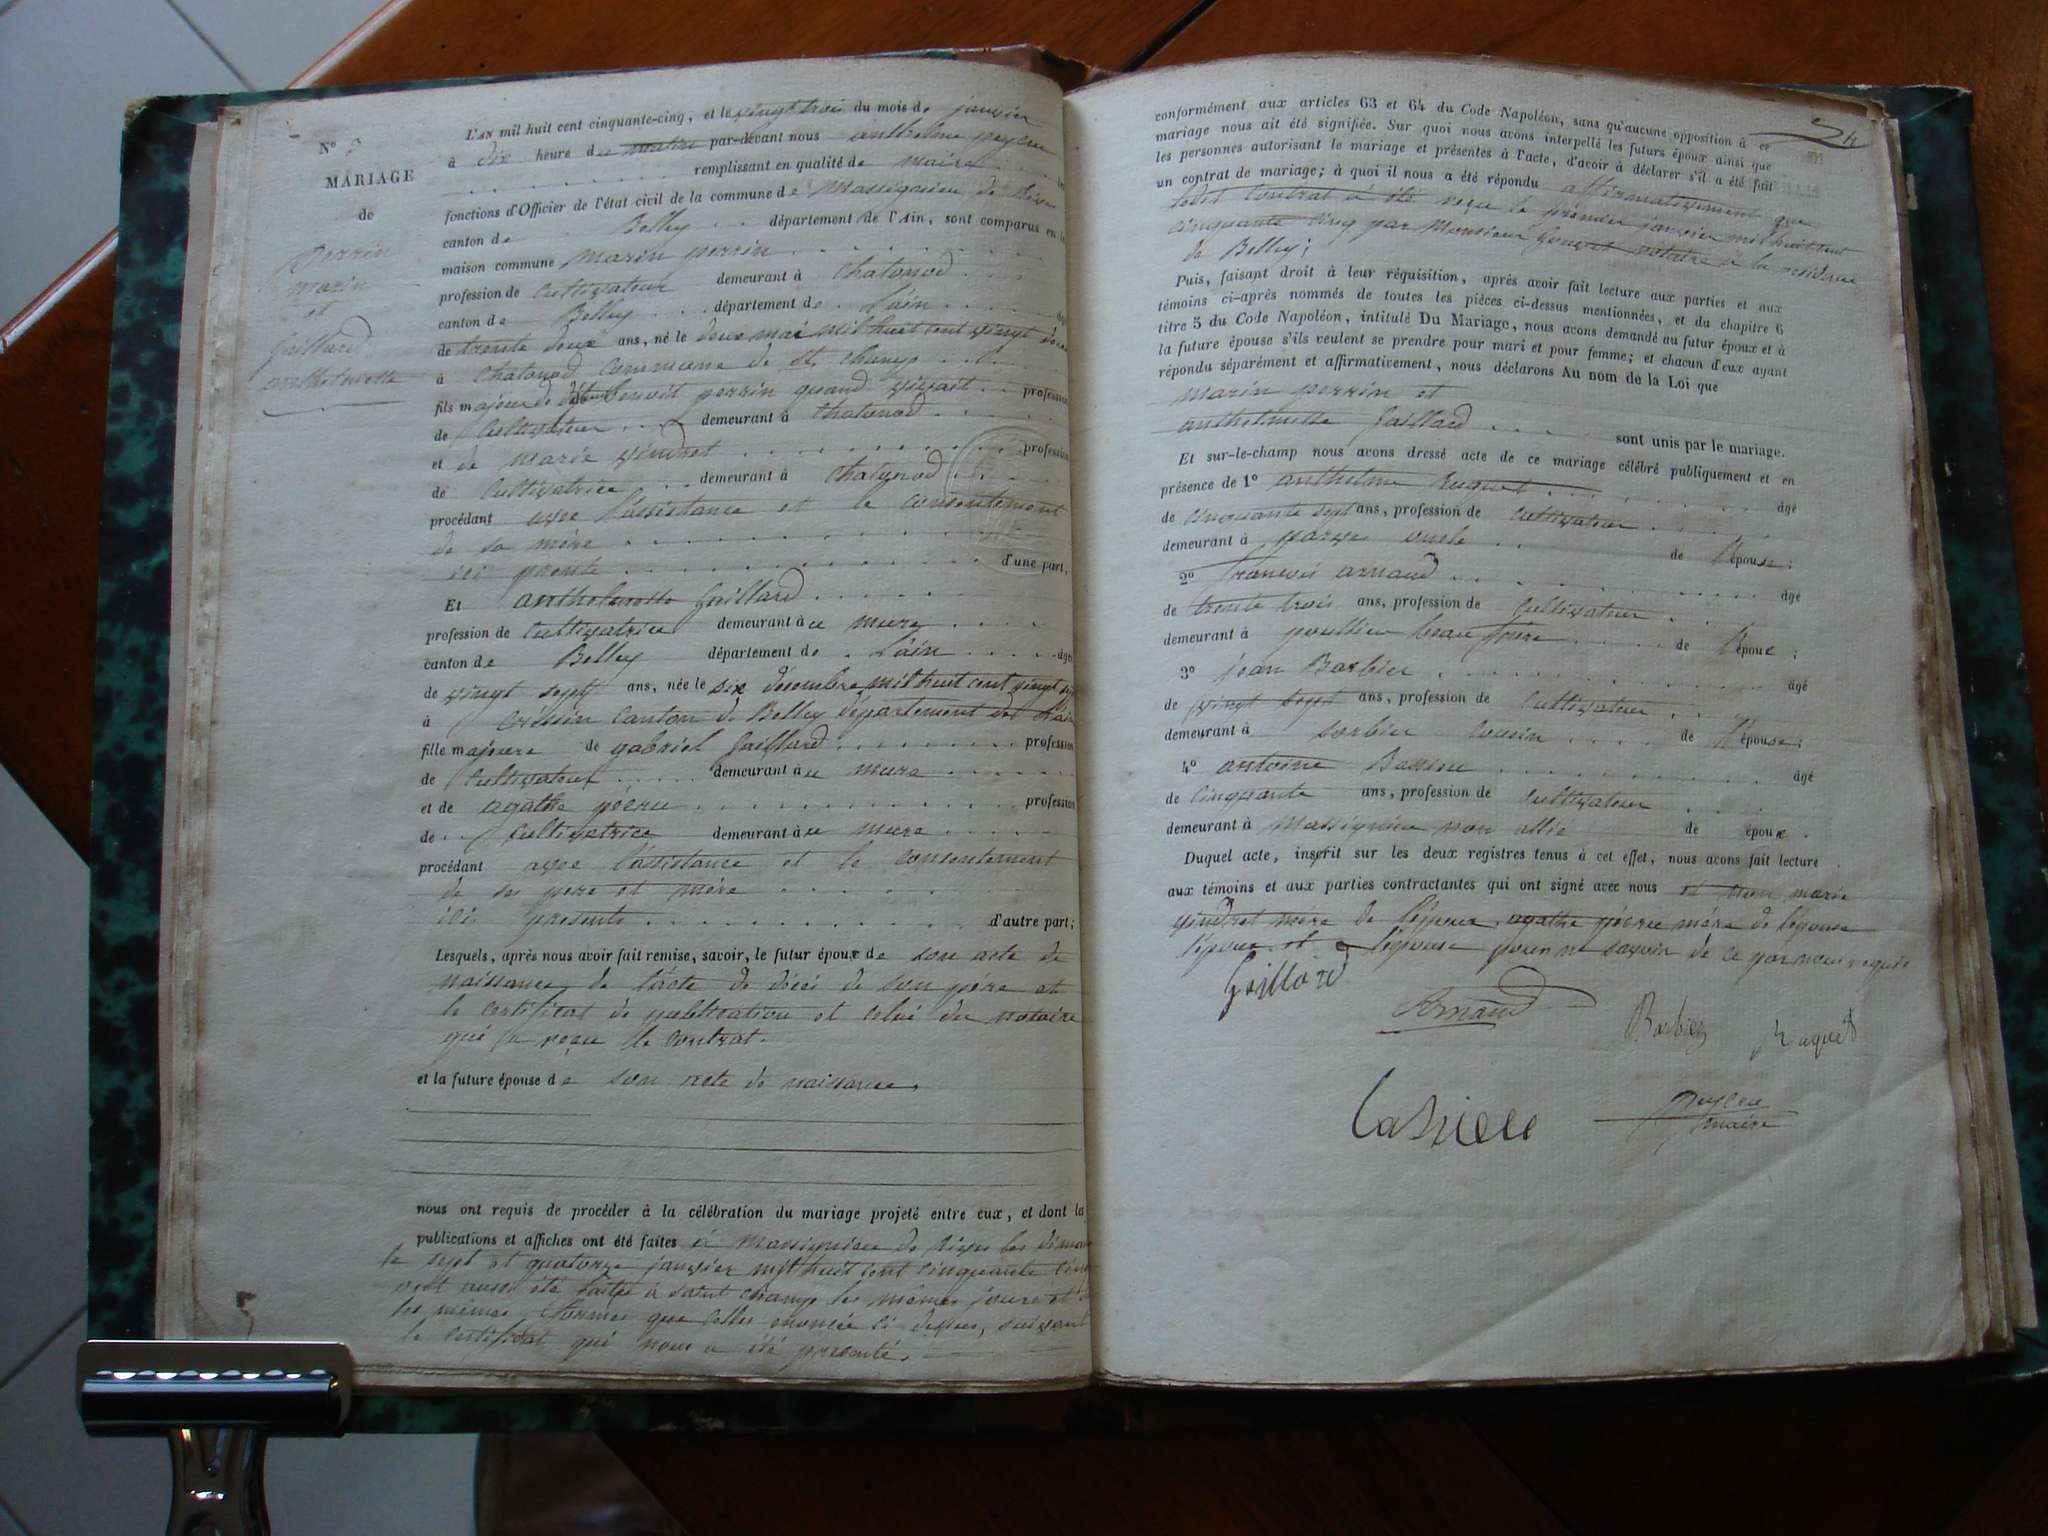 N°
MARIAGE
de
Perrin
marin
et
Gaillard
anthelmette
L'AN mil huit cent cinquante-cinq, et le vingt trois du mois de janvier
à dix heure du matin par-devant nous anthelme peyeu
remplissant en qualité de maire les
fonctions d'Officier de l'état civil de la commune de Massignieu de Rives
canton de Belley département de l'Ain, sont comparus en la
maison commune marin perrin
profession de Cultivateur demeurant à Chatonod
canton de Belley département de L'ain âgé
de trente deux ans, né le deux mai mil huit cent vingt deux
à Chatonod Commune de St champ
fils majeur de défunt benoit perrin quand vivait profession
de Cultivateur demeurant à Chatonod
et de marie vindret profession
de Cultivatrice demeurant à Chatonod
procédant avec l'assistance et le consentement
de sa mère
ici présente d'une part,
Et anthelmette Gaillard
profession de Cultivatrice demeurant à au mure
canton de Belley département de L'ain âgée
de vingt sept ans, née le six décembre mil huit cent vingt sept
à Cressin Canton de Belley département de l'ain
fille majeure de gabriel Gaillard profession
de Cultivateur demeurant à au mure
et de agathe péeru profession
de Cultivatrice demeurant à au mure
procédant avec l'assistance et le consentement
de ses pere et mère
ici presents d'autre part;
Lesquels, après nous avoir fait remise, savoir, le futur époux de son acte de
naissance, de l'acte de décés de son père et
le certificat de publication et celui du notaire
qui a reçu le contrat.
et la future épouse de son acte de naissance,
nous ont requis de procéder à la célébration du mariage projeté entre eux, et dont les
publications et affiches ont été faites à Massignieu de Rives les dimanches
le sept et quatorze janvier mil huit cent cinquante cinq
ont aussi été faites à saint Champ les mêmes jours et
les mêmes formes que celles énoncée ci dessus, suivant
le certificat qui nous a été présenté.
24
conformément aux articles 63 et 64 du Code Napoléon, sans qu'aucune opposition à ce
mariage nous ait été signifiée. Sur quoi nous avons interpellé les futurs époux ainsi que
les personnes autorisant le mariage et présentes à l'acte, d'avoir à déclarer s'il a été fait
un contrat de mariage; à quoi il nous a été répondu affirmativement que
ledit Contrat à été reçu le premier janvier mil huit cent
cinquante cinq par Monsieur notaire à la résidence
de Belley;
Puis, faisant droit à leur réquisition, après avoir fait lecture aux parties et aux
témoins ci-après nommés de toutes les pièces ci-dessus mentionnées, et du chapitre 6
titre 5 du Code Napoléon, intitulé Du Mariage, nous avons demandé au futur époux et à
la future épouse s'ils veulent se prendre pour mari et pour femme; et chacun d'eux ayant
répondu séparément et affirmativement, nous déclarons Au nom de la Loi que
marin perrin et
anthelmette Gaillard sont unis par le mariage.
Et sur-le-champ nous avons dressé acte de ce mariage célébré publiquement et en
présence de 1° anthelme Ruquet âgé
de cinquante sept ans, profession de Cultivateur
demeurant à parves oncle de l'épouse;
2° francois arnaud âgé
de trente trois ans, profession de Cultivateur
demeurant à poullieu beau frère de l'époux;
3° jean Barbier âgé
de vingt sept ans, profession de Cultivateur
demeurant à sorbier Cousin de l'épouse;
4° antoine âgé
de Cinquante ans, profession de Cultivateur
demeurant à Massignieu non allié de époux.
Duquel acte, inscrit sur les deux registres tenus à cet effet, nous avons fait lecture
aux témoins et aux parties contractantes qui ont signé avec nous et non marie
vindret mère de l'époux, agathe péeru mère de l'épouse
l'époux et l'épouse pour ne savoir de ce par nous requis
Gaillard
Arnaud
Barbier
Ruquet
peyeu
maire